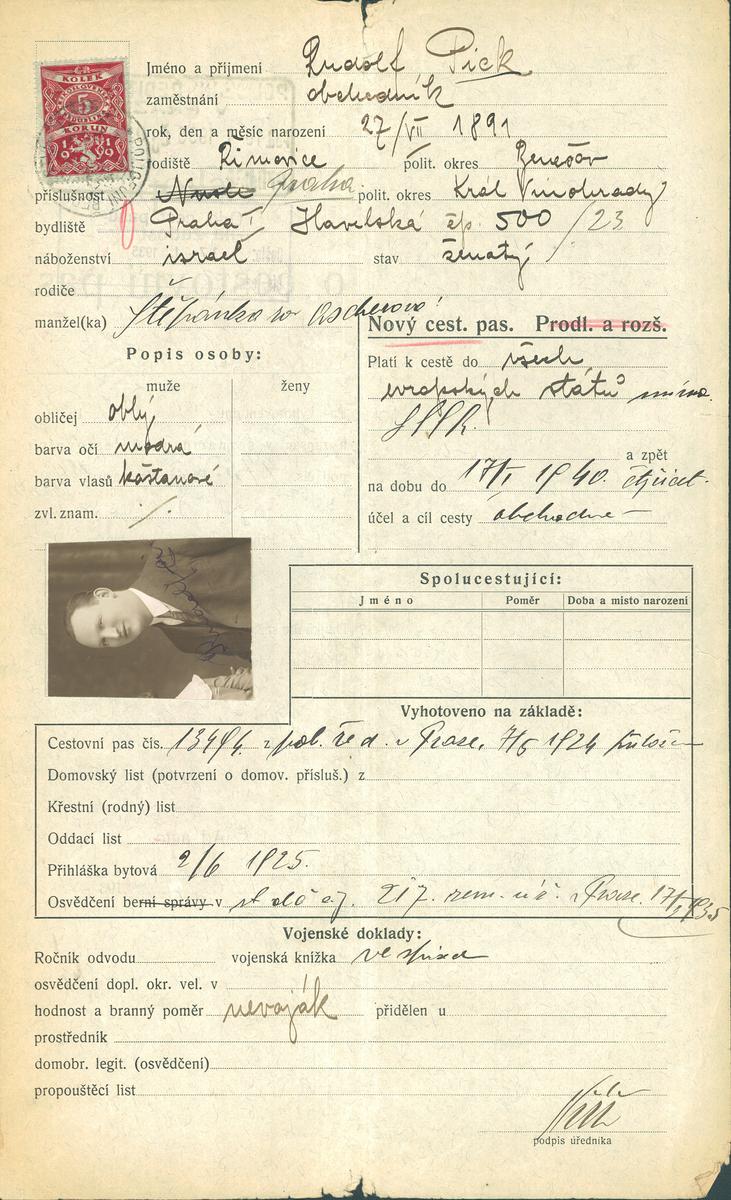 KOLEK
5
KORUN
Jméno a příjmení Rudolf Pick
zaměstnání obchodník
rok, den a měsíc narození 27/VII 1891
rodiště Řimovice polit. okres Benešov
příslušnost Nusle Praha polit. okres Král Vinohrady
bydliště Praha I Havelská čp. 500/23
náboženství israel stav ženatý
rodiče
manžel(ka) Štěpánka roz Ascherová
Nový cest. pas. Prodl. a rozš.
Popis osoby:
muže ženy
obličej oblý
barva očí modrá
barva vlasů kaštanové
zvl. znam. ·/·
Platí k cestě do všech
evropských států mimo
SSSR.
a zpět
na dobu do 17/I 1940.
účel a cíl cesty obchodně
Spolucestující:
Jméno Poměr Doba a místo narození
Vyhotoveno na základě:
Cestovní pas čís. pol. řed. v Praze,
Domovský list (potvrzení o domov. přísluš.) z
Křestní (rodný) list
Oddací list
Přihláška bytová 2/6 1925.
Osvědčení berní správy v v Praze. 17/I 1935
Vojenské doklady:
Ročník odvodu vojenská knížka
osvědčení dopl. okr. vel. v
hodnost a branný poměr nevoják přidělen u
prostředník
domobr. legit. (osvědčení)
propouštěcí list
podpis úředníka